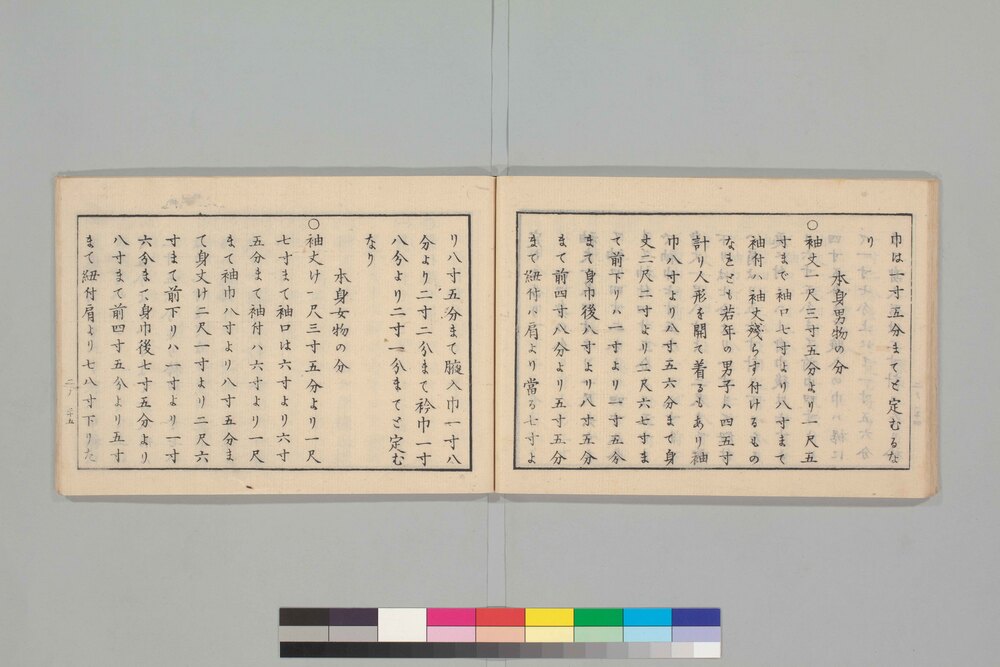 巾は一寸五分まてと定むるな
り
本身男物の分
〇袖丈一尺三寸五分より一尺五
寸まで袖口七寸より八寸まて
袖付ハ袖丈残らす付けるもの
なれとも若年の男子ハ四五寸
計り人形を開て着るもあり袖
巾八寸より八寸五六分まて身
丈二尺二寸より二尺六七寸ま
て前下りハ一寸より一寸五分
まて身巾後八寸より八寸五分
まて前四寸八分より五寸五分
まて紐付ハ肩より當る七寸よ
り八寸五分まて腋入巾一寸八
分より二寸二分まて衿巾一寸
八分より二寸一分まてと定む
なり
本身女物の分
〇袖丈け一尺三寸五分より一尺
七寸まて袖口は六寸より六寸
五分まて袖付ハ六寸より一尺
まて袖巾八寸より八寸五分ま
て身丈け二尺一寸より二尺六
寸まて前下りハ一寸より一寸
六分まて身巾後七寸五分より
八寸まて前四寸五分より五寸
まて紐付肩より七八寸下りた